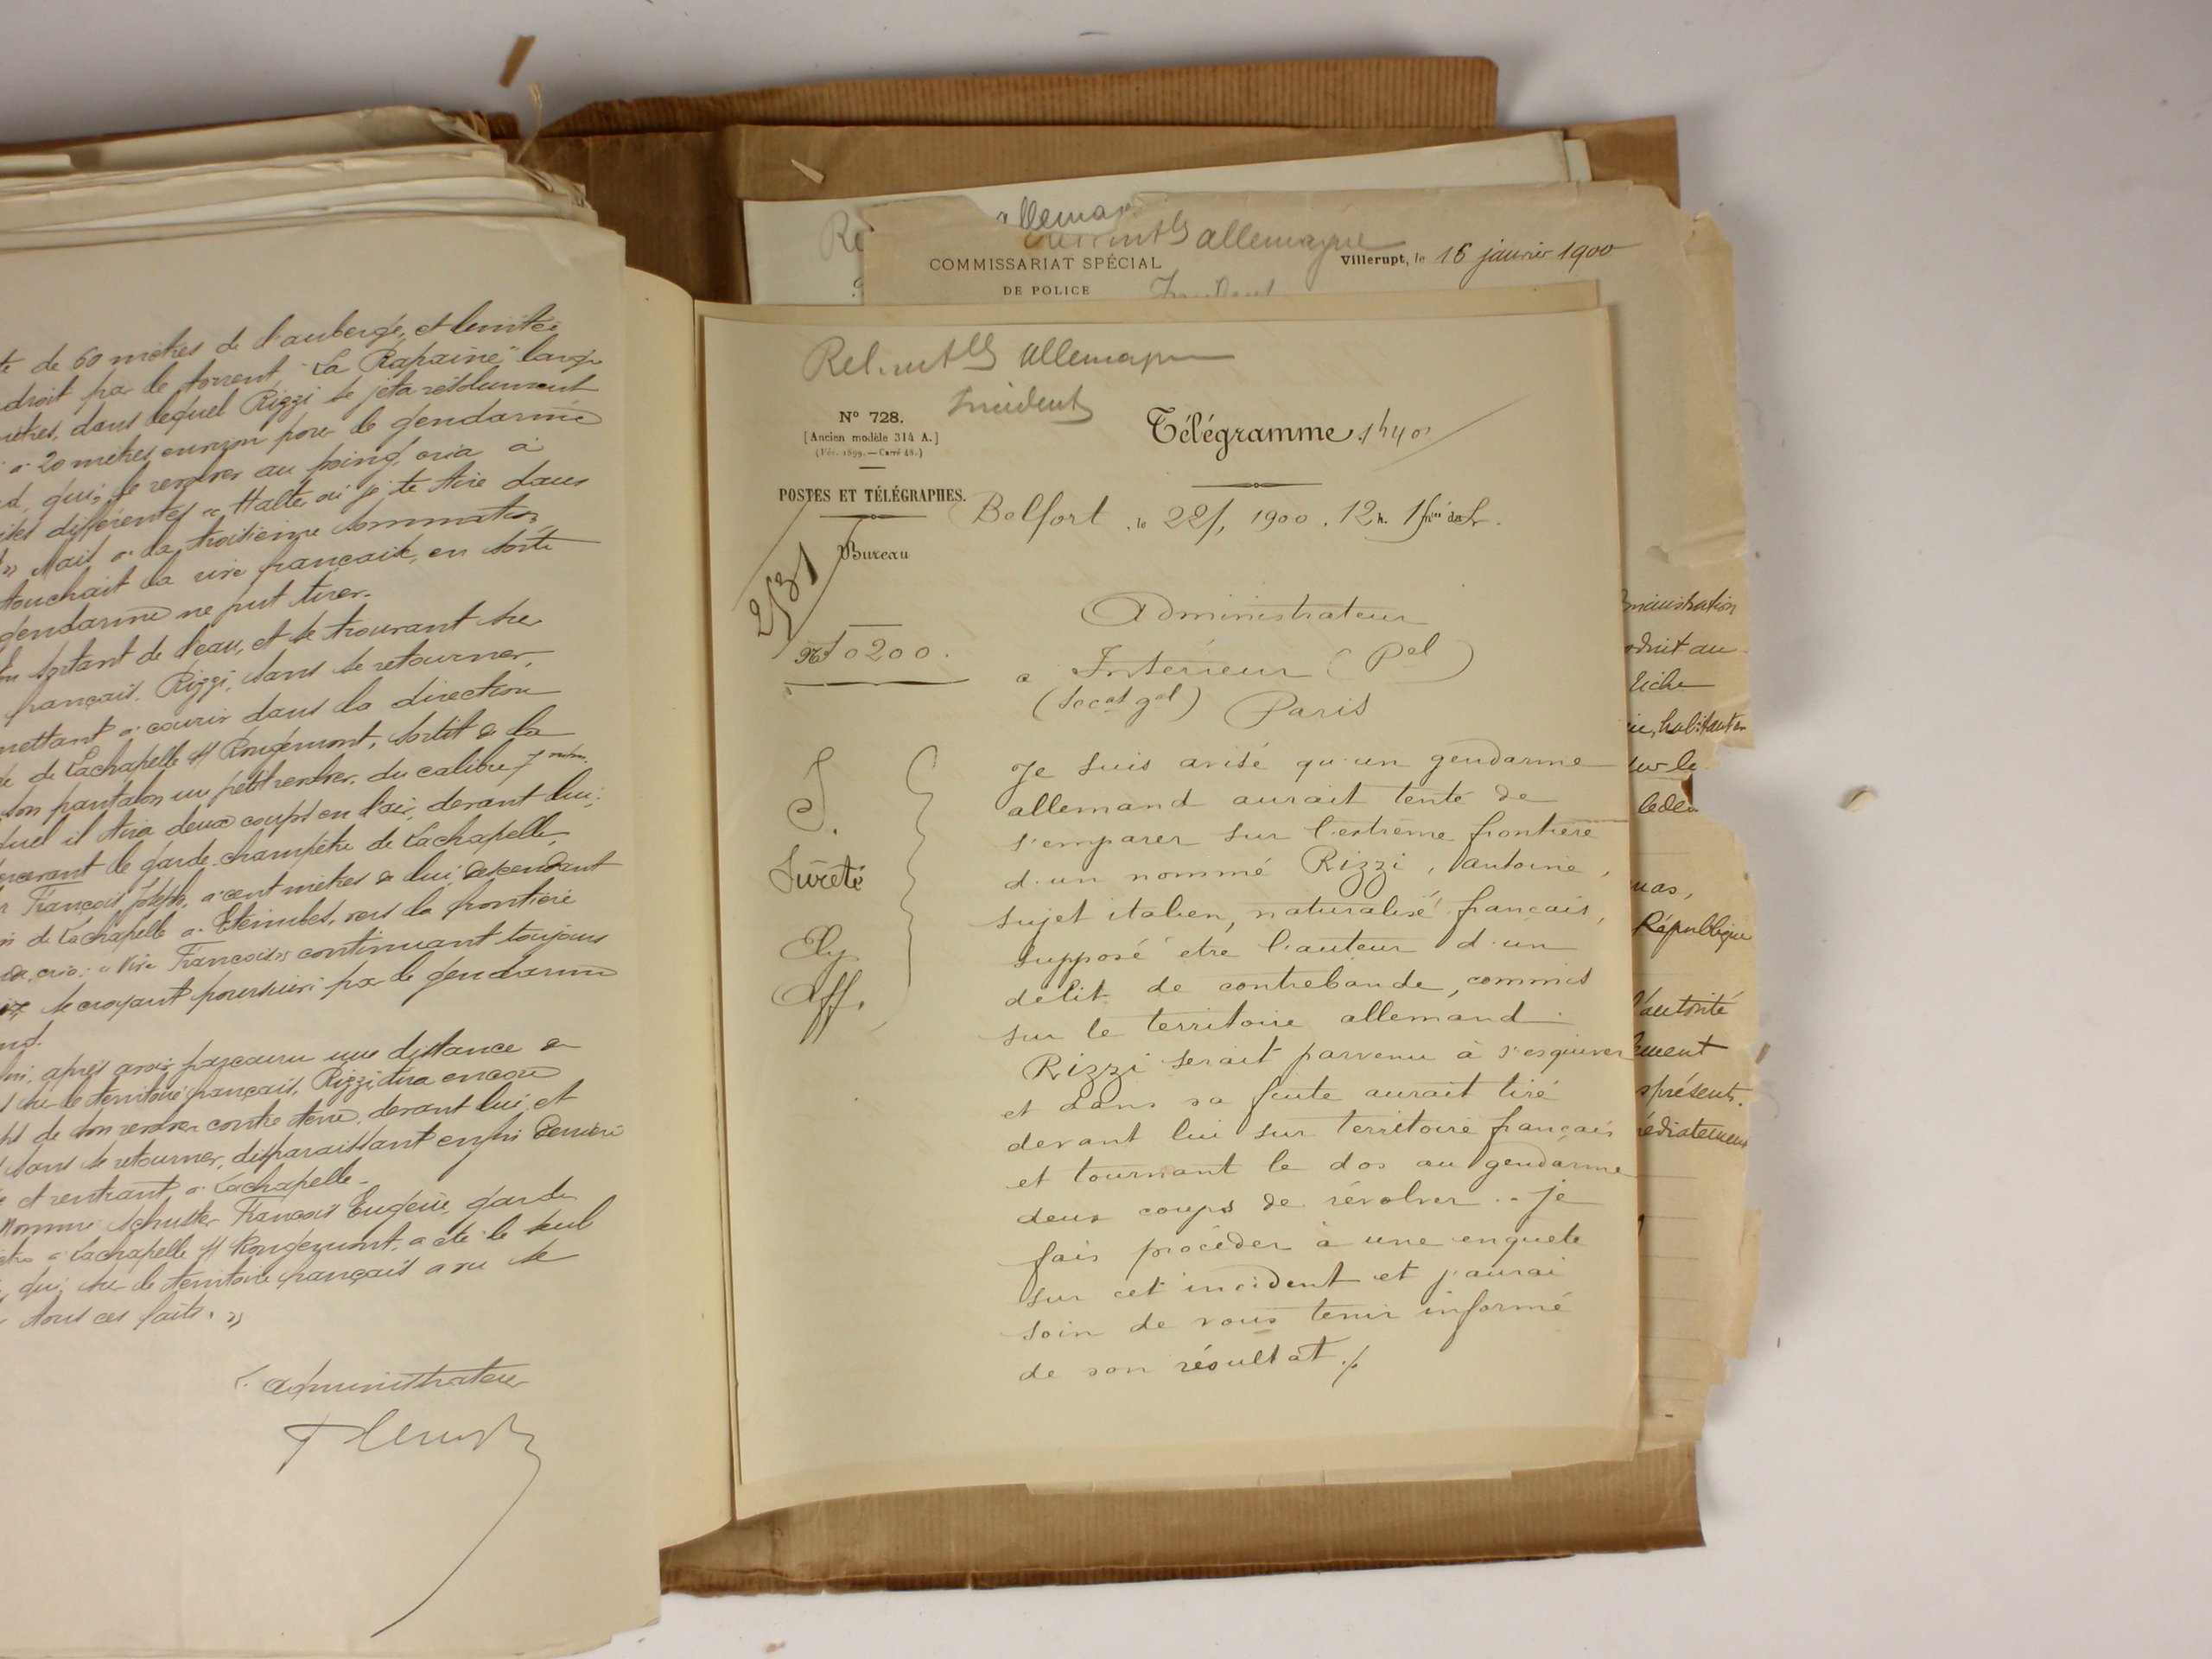 te de 60 mètres de l'auberge, et limitée
droit par le torrent "La Rapaine" large
mètres, dans lequel Rizzi se jeta résolument
à 20 mètres environ par le gendarme
d, qui, le revolver au poing, cria à
ises différentes « Halte ou je te tire dans
» Mais à la troisième sommation
touchait la rive française, en sorte
gendarme ne put tirer.
sortant de l'eau, et se trouvant sur
français, Rizzi, sans se retourner,
mettant à courir dans la direction
de Lachapelle s/ Rougemont, sortit de la
son pantalon un petit revolver, du calibre 7 m/m.
quel il tira deux coups en l'air, devant lui;
le garde-champêtre de Lachapelle,
François Joseph, à cent mètres de lui, descendant
de Lachapelle à Eteimbes, vers la frontière
cria: « Vive François » continuant toujours
se croyant poursuivi par le gendarme
nd.
après avoir parcouru une distance de
sur le territoire français, Rizzi tira encore
de son revolver contre terre, devant lui, et
sans se retourner, disparaissant enfin derrière
et rentrant à Lachapelle.
nommé Schuster François Eugène, garde
à Lachapelle s/ Rougemont, a été le seul
qui, sur le territoire français a vu se
tous ces faits. »
L'administrateur
allemagne
COMMISSARIAT SPÉCIAL
DE POLICE
Villerupt, le 16 janvier 1900
Incident
allemagne
Incident
N° 728.
[Ancien modèle 314 A.]
(Fév. 1899. — Carré 48.)
Télégramme
POSTES ET TÉLÉGRAPHES.
Bureau
Belfort, le 22/, 1900. 12 h.
2/31
N° 0200.
Administrateur
a Intérieur (Pel)
(Secat gal) Paris
S.
Sûreté
Aff.
Je suis avisé qu'un gendarme
allemand aurait tenté de
s'emparer sur l'extrême frontière
d'un nommé Rizzi, antoine,
sujet italien, naturalisé français,
supposé être l'auteur d'un
délit de contrebande, commis
sur le territoire allemand.
Rizzi serait parvenu à s'esquiver
et dans sa fuite aurait tiré
devant lui sur territoire français
et tournant le dos au gendarme
deux coups de révolver .. je
fais procéder à une enquête
sur cet incident et j'aurai
soin de vous tenir informé
de son résultat ./.
ministration
oduit au
liche
habitant
sur le
République
l'autorité
ement